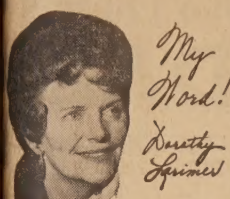 My
Word!
Dorothy
Larimer